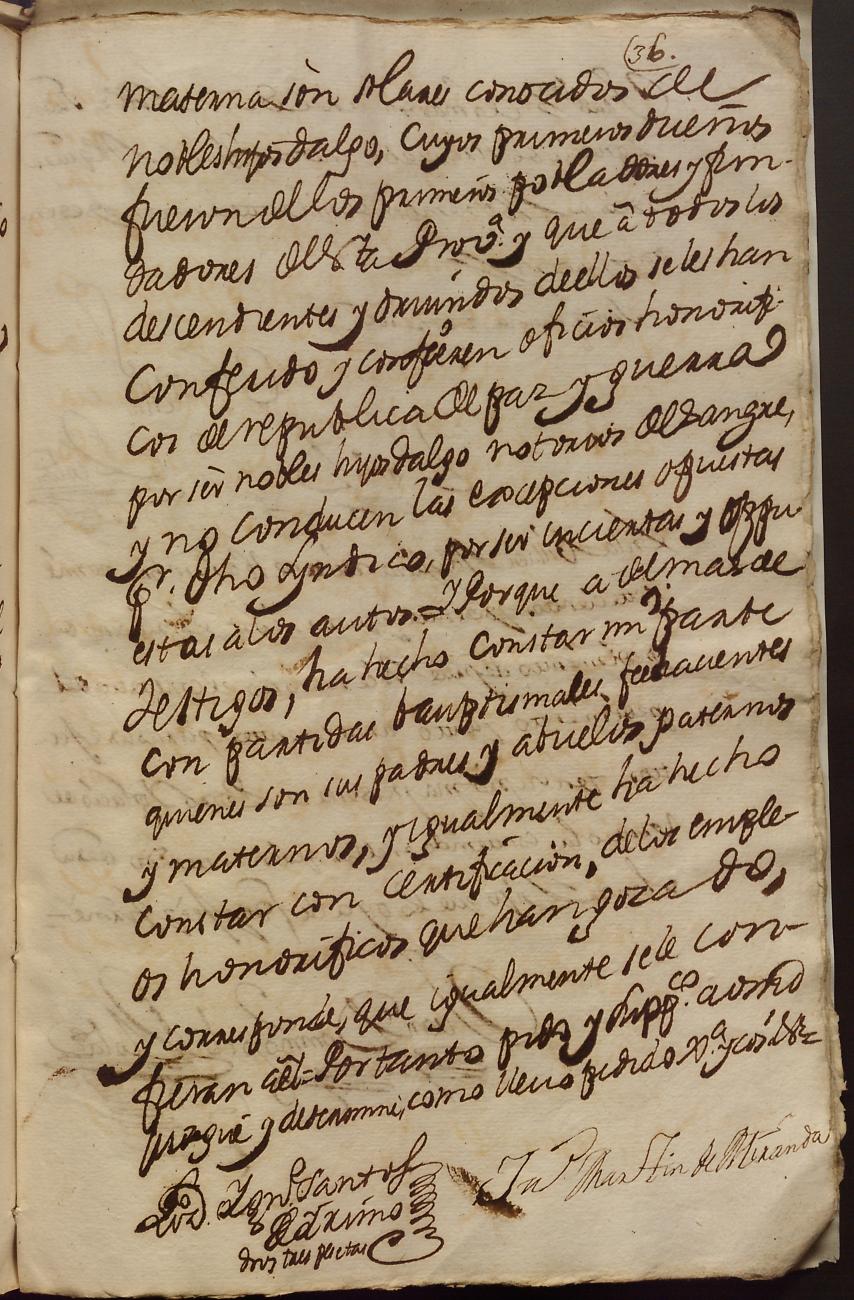 (36.
materna son solares conocidos de
nobles hijosdalgo, Cuyos primeros dueños
fueron de los primeros pobladores y fun-
dadores de esta Prov.ª y que à todos los
descendientes y oriundos de ellos se les han
Conferido y confieren oficios honorifi-
cos de republica de paz y guerra
por ser nobles hijosdalgo notorios de sangre,
y no conducen las excepciones opuestas
pr. dho Sindico, por ser inciertas y oppu
estas a los autos = Y Porque a demas de
testigos, ha hecho constar mi parte
con partidas bauptismales feehacientes
quienes son sus padres y abuelos paternos
y maternos, y igualmente ha hecho
constar con Certificacion, de los emple-
os honorificos que han gozado,
y corresponde, que igualmente se le con-
fieran a el = Por tanto pido y supp.co a vmd
y determine, como llevo pedido
Lizd. Ygn.º Santos
dros tres pesetas
Martin de Miranda